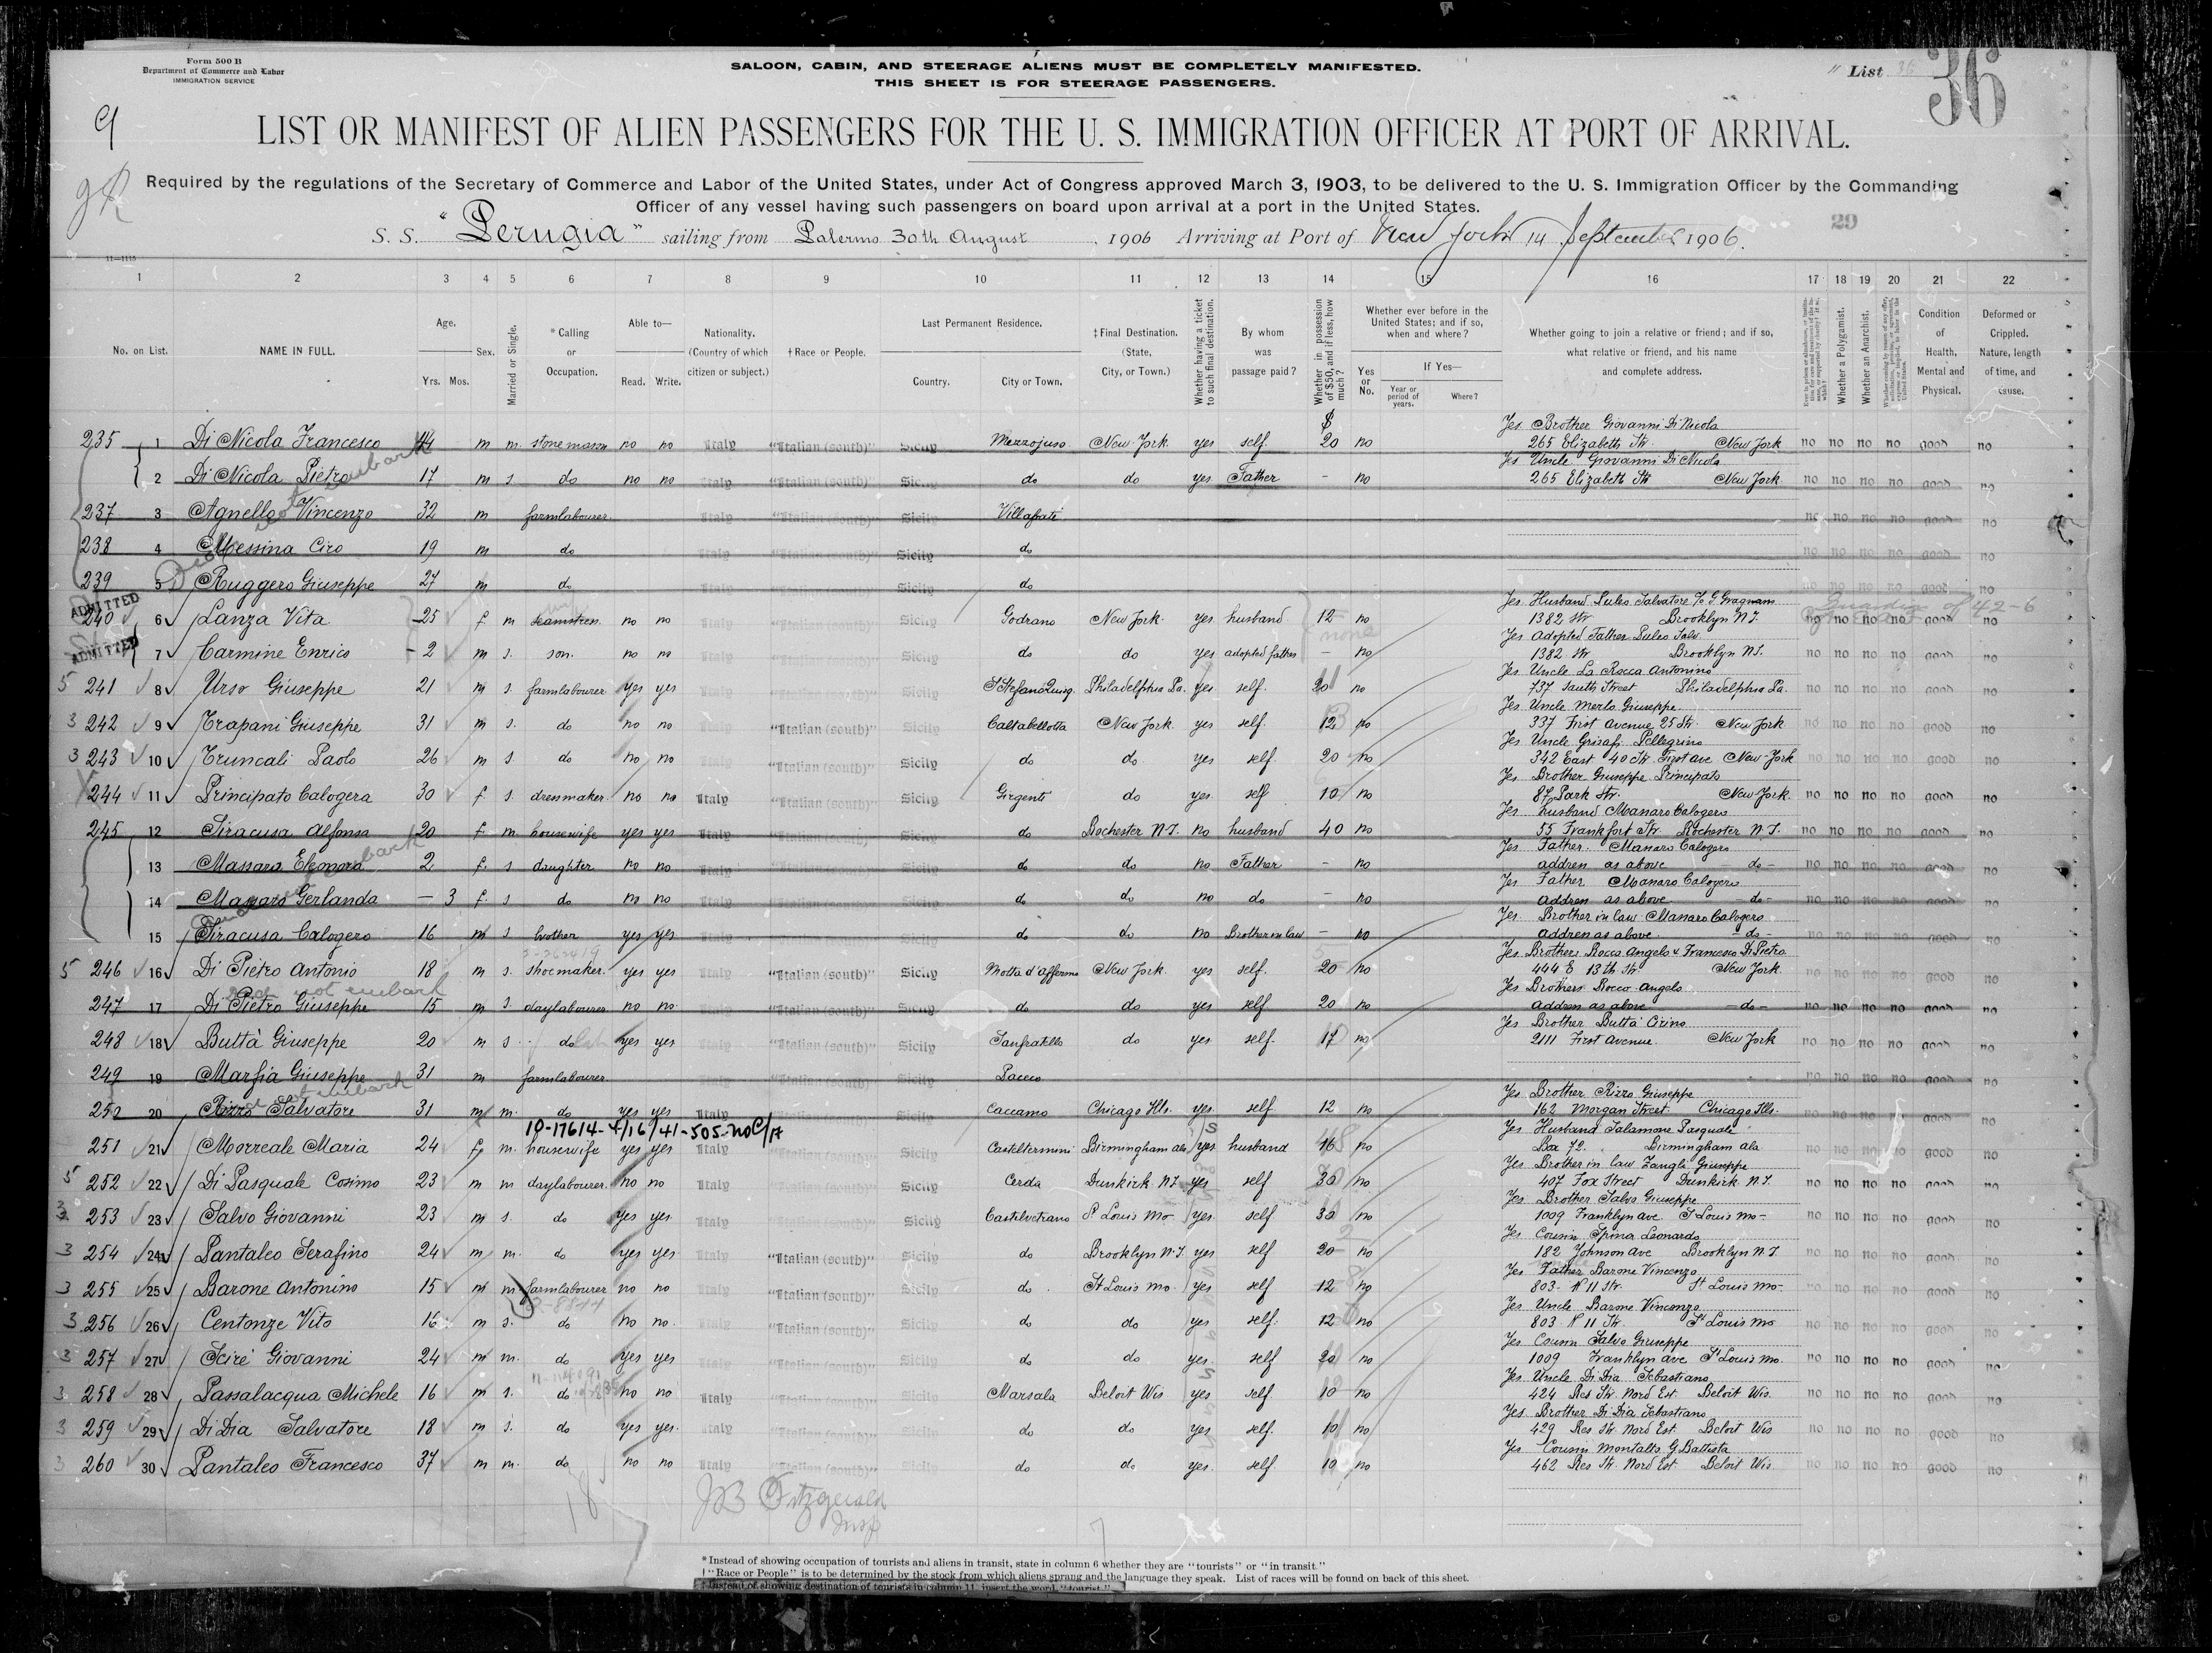 Form 500 B
Department of Commerce and Labor
IMMIGRATION SERVICE
SALOON, CABIN, AND STEERAGE ALIENS MUST BE COMPLETELY MANIFESTED.
THIS SHEET IS FOR STEERAGE PASSENGERS.
List 36
36
9
LIST OR MANIFEST OF ALIEN PASSENGERS FOR THE U. S. IMMIGRATION OFFICER AT PORT OF ARRIVAL.
Required by the regulations of the Secretary of Commerce and Labor of the United States, under Act of Congress approved March 3, 1903, to be delivered to the U. S. Immigration Officer by the Commanding
Officer of any vessel having such passengers on board upon arrival at a port in the United States.
29
S. S. "Perugia" sailing from Palermo 30th August, 1906 Arriving at Port of New York 14 September 1906.
1 2 3 4 5 6 7 8 9 10 11 12 13 14 15 16 17 18 19 20 21 22
No. on List. NAME IN FULL. Age. Yrs. Mos. Sex. Married or Single. *Calling or Occupation. Able to— Read. Write. Nationality. (Country of which citizen or subject.) †Race or People. Last Permanent Residence. Country. City or Town, ‡Final Destination. (State, City, or Town.) Whether having a ticket to such final destination. By whom was passage paid? Whether in possession of $50, and if less, how much? Whether ever before in the United States; and if so, when and where? Yes or No. If Yes— Year or period of years. Where? Whether going to join a relative or friend; and if so, what relative or friend, and his name and complete address. Whether a Polygamist. Whether an Anarchist. Condition of Health, Mental and Physical. Deformed or Crippled. Nature, length of time, and cause.
Yes Brother Giovanni Di Nicola
235 1 Di Nicola Francesco 44 m m. stone mason no no Italy "Italian (south)" Sicily Mezzojuso New York. yes self. $ 20 no 265 Elizabeth Str. New York no no no no good no
Yes Uncle Giovanni Di Nicola
2 Di Nicola Pietro 17 m s do no no Italy "Italian (south)" Sicily do do yes Father - no 265 Elizabeth Str New York no no no no good no
237 3 Agnello Vincenzo 32 m farmlabourer Italy "Italian (south)" Sicily Villafrati no no no no good no
238 4 Messina Ciro 19 m do Italy "Italian (south)" Sicily do no no no no good no
239 5 Ruggero Giuseppe 27 m do Italy "Italian (south)" Sicily do no no no no good no
ADMITTED
Yes Husband Pules Salvatore
240 6 Lanza Vita 25 f m seamstress no no Italy "Italian (south)" Sicily Godrano New York. yes husband 12 no 1382 Str Brooklyn N.Y. no no no no good no
none
ADMITTED
Yes Adopted Father Pules Salv.
7 Carmine Enrico 2 m s. son. no no Italy "Italian (south)" Sicily do do yes adopted father - no 1382 Str Brooklyn N.Y. no no no no good no
Yes Uncle La Rocca Antonino
5 241 8 Urso Giuseppe 21 m s. farmlabourer yes yes Italy "Italian (south)" Sicily S Stefano Quisq. Philadelphia Pa. yes self. 20 no 737 South Street Philadelphia Pa. no no no no good no
Yes Uncle Merlo Giuseppe
3 242 9 Trapani Giuseppe 31 m s. do no no Italy "Italian (south)" Sicily Caltabellotta New York. yes self. 12 no 337 First Avenue 25 Str. New York no no no no good no
Yes Uncle Grisafi Pellegrino
3 243 10 Truncali Paolo 26 m s do no no Italy "Italian (south)" Sicily do do yes self. 20 no 342 East 40 Str. First Ave New-York no no no no good no
Yes Brother Giuseppe Principato
244 11 Principato Calogera 30 f s. dressmaker no no Italy "Italian (south)" Sicily Girgenti do yes. self 10 no 87 Park Str. New York. no no no no good no
Yes husband Massaro Calogero
245 12 Siracusa Alfonsa 20 f. m. housewife yes yes Italy "Italian (south)" Sicily do Rochester N.Y. no husband 40 no 55 Frankfort Str. Rochester N.Y. no no no no good no
Yes Father. Massaro Calogero
13 Massaro Eleonora 2 f. s daughter no no Italy "Italian (south)" Sicily do do no Father - no address as above -do- no no no no good no
Yes Father Massaro Calogero
14 Massaro Gerlanda - 3 f. s do no no Italy "Italian (south)" Sicily do do. no do - no address as above. -do- no no no no good no
Yes Brother in law Massaro Calogero
15 Siracusa Calogero 16 m s brother yes yes Italy do do no Brother in law - no address as above. -do- no no no no good no
Yes Brothers Rocco Angelo & Francesco Di Pietro
5 246 16 Di Pietro Antonio 18 m s. shoemaker. yes yes Italy "Italian (south)" Sicily Motta d'affermo New York. yes self. 20 no 444 E 13th Str. New York no no no no good no
not embark
Yes Brothers Rocco Angelo
247 17 Di Pietro Giuseppe 15 m s. daylabourer no no Italy "Italian (south)" Sicily do do yes self 20 no address as above -do- no no no no good no
Yes Brother Buttà Cirino
248 18 Buttà Giuseppe 20 m s. do yes yes Italy "Italian (south)" Sicily Sanfratello do yes self. 17 no 2111 First Avenue. New York no no no no good no
249 19 Marfia Giuseppe 31 m farmlabourer. Italy "Italian (south)" Sicily Pacceo no no no no good no
not embark
Yes Brother Rizzo Giuseppe
250 20 Rizzo Salvatore 31 m m. do yes yes Italy Sicily Caccamo Chicago Ills. yes self. 12 no 162 Morgan Street Chicago Ills. no no no no good no
10-17614-4/16/41-505-no C/A
Yes Husband Salamone Pasquale
251 21 Morreale Maria 24 f. m. housewife yes yes Italy "Italian (south)" Sicily Casteltermini Birmingham ala yes husband 16 no Box 72. Birmingham ala no no no no good no
Yes Brother in law Zangli Giuseppe
5 252 22 Di Pasquale Cosimo 23 m m daylabourer. no no Italy "Italian (south)" Sicily Cerda Dunkirk N.Y. yes self 30 no 407 Fox Street Dunkirk N.Y. no no no no good no
Yes Brother Salvo Giuseppe
3 253 23 Salvo Giovanni 23 m s. do yes yes Italy "Italian (south)" Sicily Castelvetrano St Louis Mo yes. self 30 no 1009 Franklyn ave. St Louis Mo- no no no no good no
Yes Cousin Spina Leonardo
3 254 24 Pantaleo Serafino 24 m m. do yes yes Italy "Italian (south)" Sicily do Brooklyn N.Y. yes self 20 no 182 Johnson ave Brooklyn N.Y no no no no good no
Yes Father Barone Vincenzo
3 255 25 Barone Antonino 15 m m farmlabourer no no Italy "Italian (south)" Sicily do. St Louis mo. yes self 12 no 803- N 11 Str. St Louis mo- no no no no good no
Yes Uncle Barone Vincenzo
3 256 26 Centonze Vito 16 m s. do no no. Italy "Italian (south)" Sicily do do yes self. 12 no 803- N 11 Str. St Louis mo no no no no good no
Yes Cousin Salvo Giuseppe
3 257 27 Sciré Giovanni 24 m m. do yes yes Italy "Italian (south)" Sicily do do yes. self 20 no 1009 Franklyn ave St Louis mo. no no no no good no
Yes Uncle Di Dia Sebastiano
3 258 28 Passalacqua Michele 16 m s. do no no Italy "Italian (south)" Sicily Marsala Beloit Wis yes self 10 no 424 Res Str. Nord Est. Beloit Wis. no no no no good no
Yes Brother Di Dia Sebastiano
3 259 29 Di Dia Salvatore 18 m s. do yes yes. Italy "Italian (south)" Sicily do do. yes self. 10 no 429 Res Str. Nord Est. Beloit Wis no no no no good no
Yes Cousin Montalto G. Battista
3 260 30 Pantaleo Francesco 37 m m. do no no Italy "Italian (south)" Sicily do do yes. self 10 no 462 Res Str. Nord Est. Beloit Wis. no no no no good no
18
JB Fitzgerald
Insp
*Instead of showing occupation of tourists and aliens in transit, state in column 6 whether they are "tourists" or "in transit."
†"Race or People" is to be determined by the stock from which aliens sprang and the language they speak. List of races will be found on back of this sheet.
‡Instead of showing destination of tourists in column 11, insert the word "tourist."